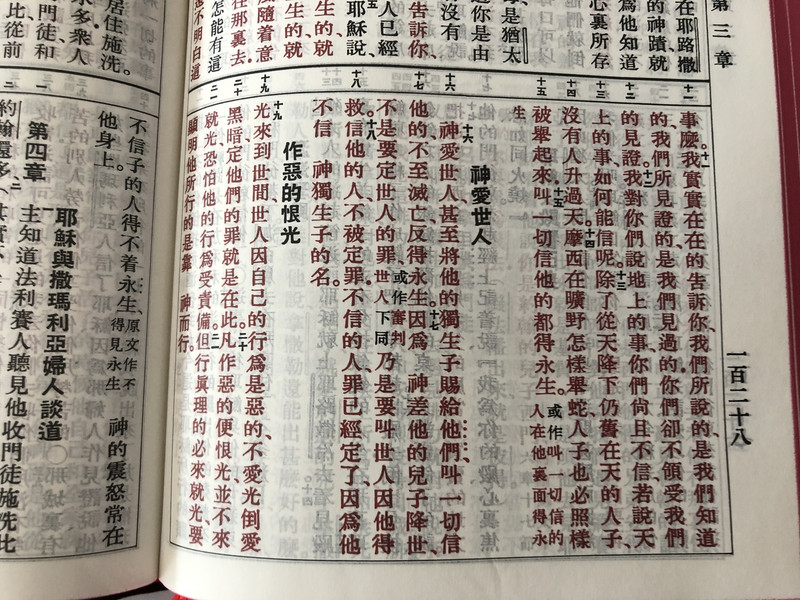 第三章
一百二十八
在耶路撒
的神蹟就
爲他知道
心裏所存
是猶太
你是由
沒有
人已經
告訴你、
耶穌說、
生的就
生的就
風隨着意
往那裏去、
怎能有這
不明白這
居住施洗。
水多衆人
門徒和
比從前
十一
十二
十三
十四
十五
十六
十七
十八
十九
二十
二一
事麼。十一我實實在在的告訴你、我們所說的、是我們知道
的、我們所見證的、是我們見過的、你們卻不領受我們
的見證。十二我對你們說地上的事、你們尙且不信、若說天
上的事、如何能信呢。十三除了從天降下仍舊在天的人子、
沒有人升過天。十四摩西在曠野怎樣舉蛇、人子也必照樣
被舉起來。十五叫一切信他的都得永生。或作叫一切信的人在他裏面得永
生
神愛世人
十六神愛世人、甚至將他的獨生子賜給他們、叫一切信
他的、不至滅亡、反得永生。十七因爲 神差他的兒子降世、
不是要定世人的罪、或作審判世人下同乃是要叫世人因他得
救。十八信他的人、不被定罪、不信的人、罪已經定了、因爲他
不信 神獨生子的名。
作惡的恨光
十九光來到世間、世人因自己的行爲是惡的、不愛光倒愛
黑暗、定他們的罪就是在此。二十凡作惡的便恨光、並不來
就光、恐怕他的行爲受責備。二一但行眞理的必來就光、要
顯明他所行的是靠 神而行。
不信子的人得不着永生、原文作不得見永生 神的震怒常在
他身上。
第四章
耶穌與撒瑪利亞婦人談道
一主知道法利賽人聽見他收門徒施洗比
約翰還多、二（其實